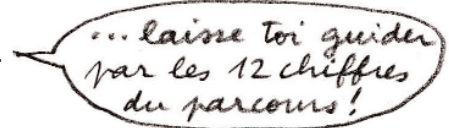 ... laisse toi guider
par les 12 chiffres
du parcours !